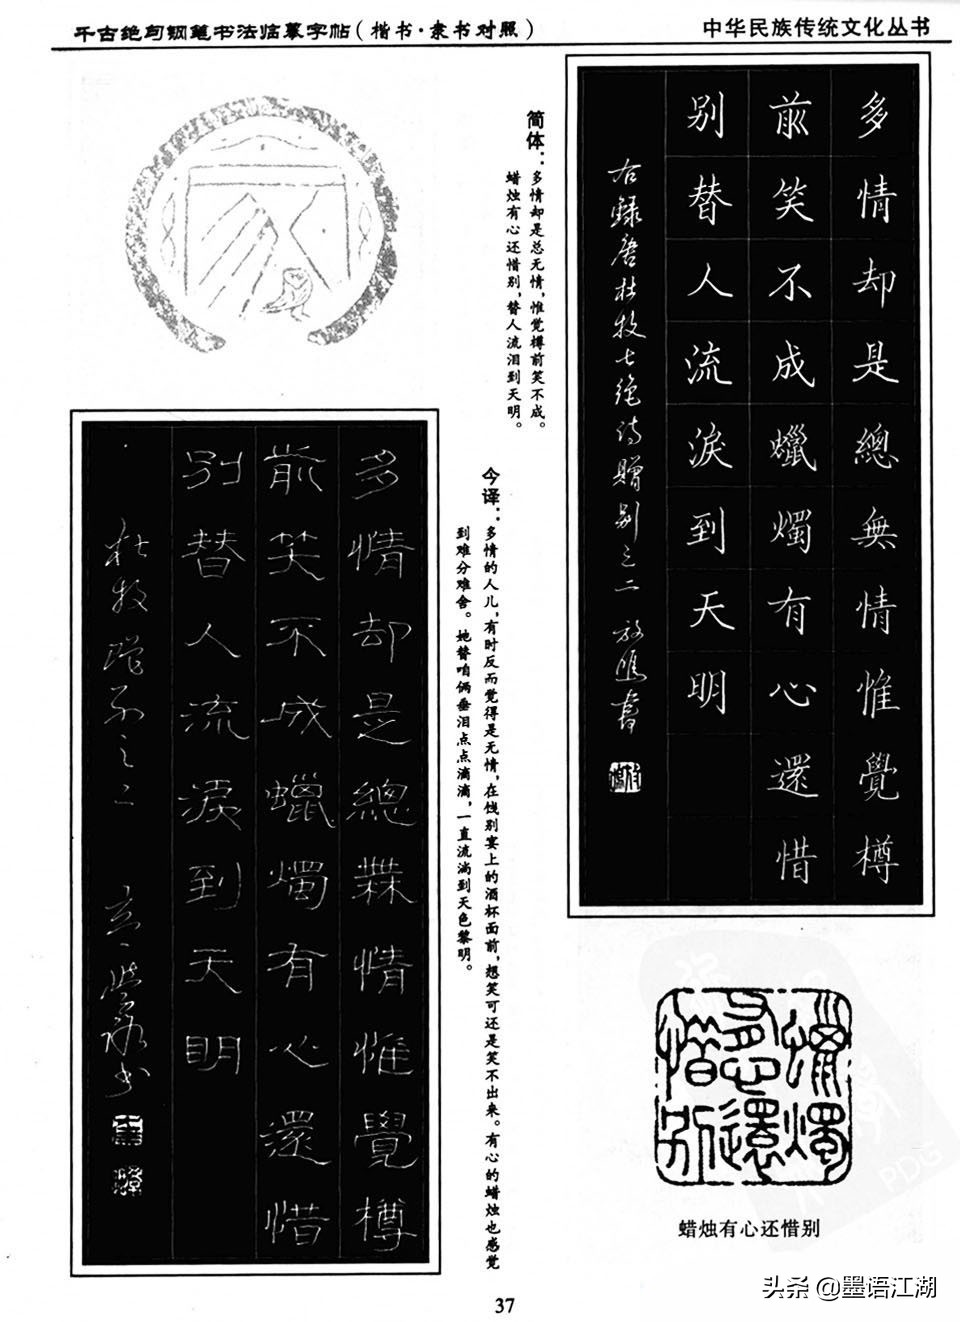 千古绝句钢笔书法临摹字帖(楷书·隶书对照)
中华民族传统文化丛书
多情却是總無情惟覺樽
前笑不成蠟燭有心還惜
别替人流淚到天明
右録唐杜牧七绝诗赠别之二
简体:多情却是总无情,惟觉樽前笑不成。
蜡烛有心还惜别,替人流泪到天明。
今译:多情的人儿,有时反而觉得是无情,在饯别宴上的酒杯面前,想笑可还是笑不出来。有心的蜡烛也感觉
到难分难舍。她替咱俩垂泪点点滴滴,一直流淌到天色黎明。
多情却是總無情惟覺樽
前笑不成蠟燭有心還惜
别替人流淚到天明
杜牧赠别之二
蠟燭有心還惜别
蜡烛有心还惜别
37
PDG
头条 @墨语江湖